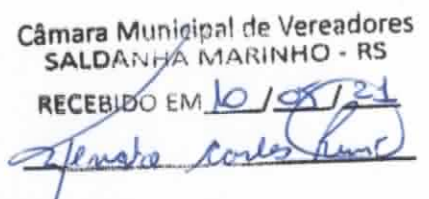 Câmara Municipal de Vereadores
SALDANHA MARINHO - RS
RECEBIDO EM 10 / 05 / 21